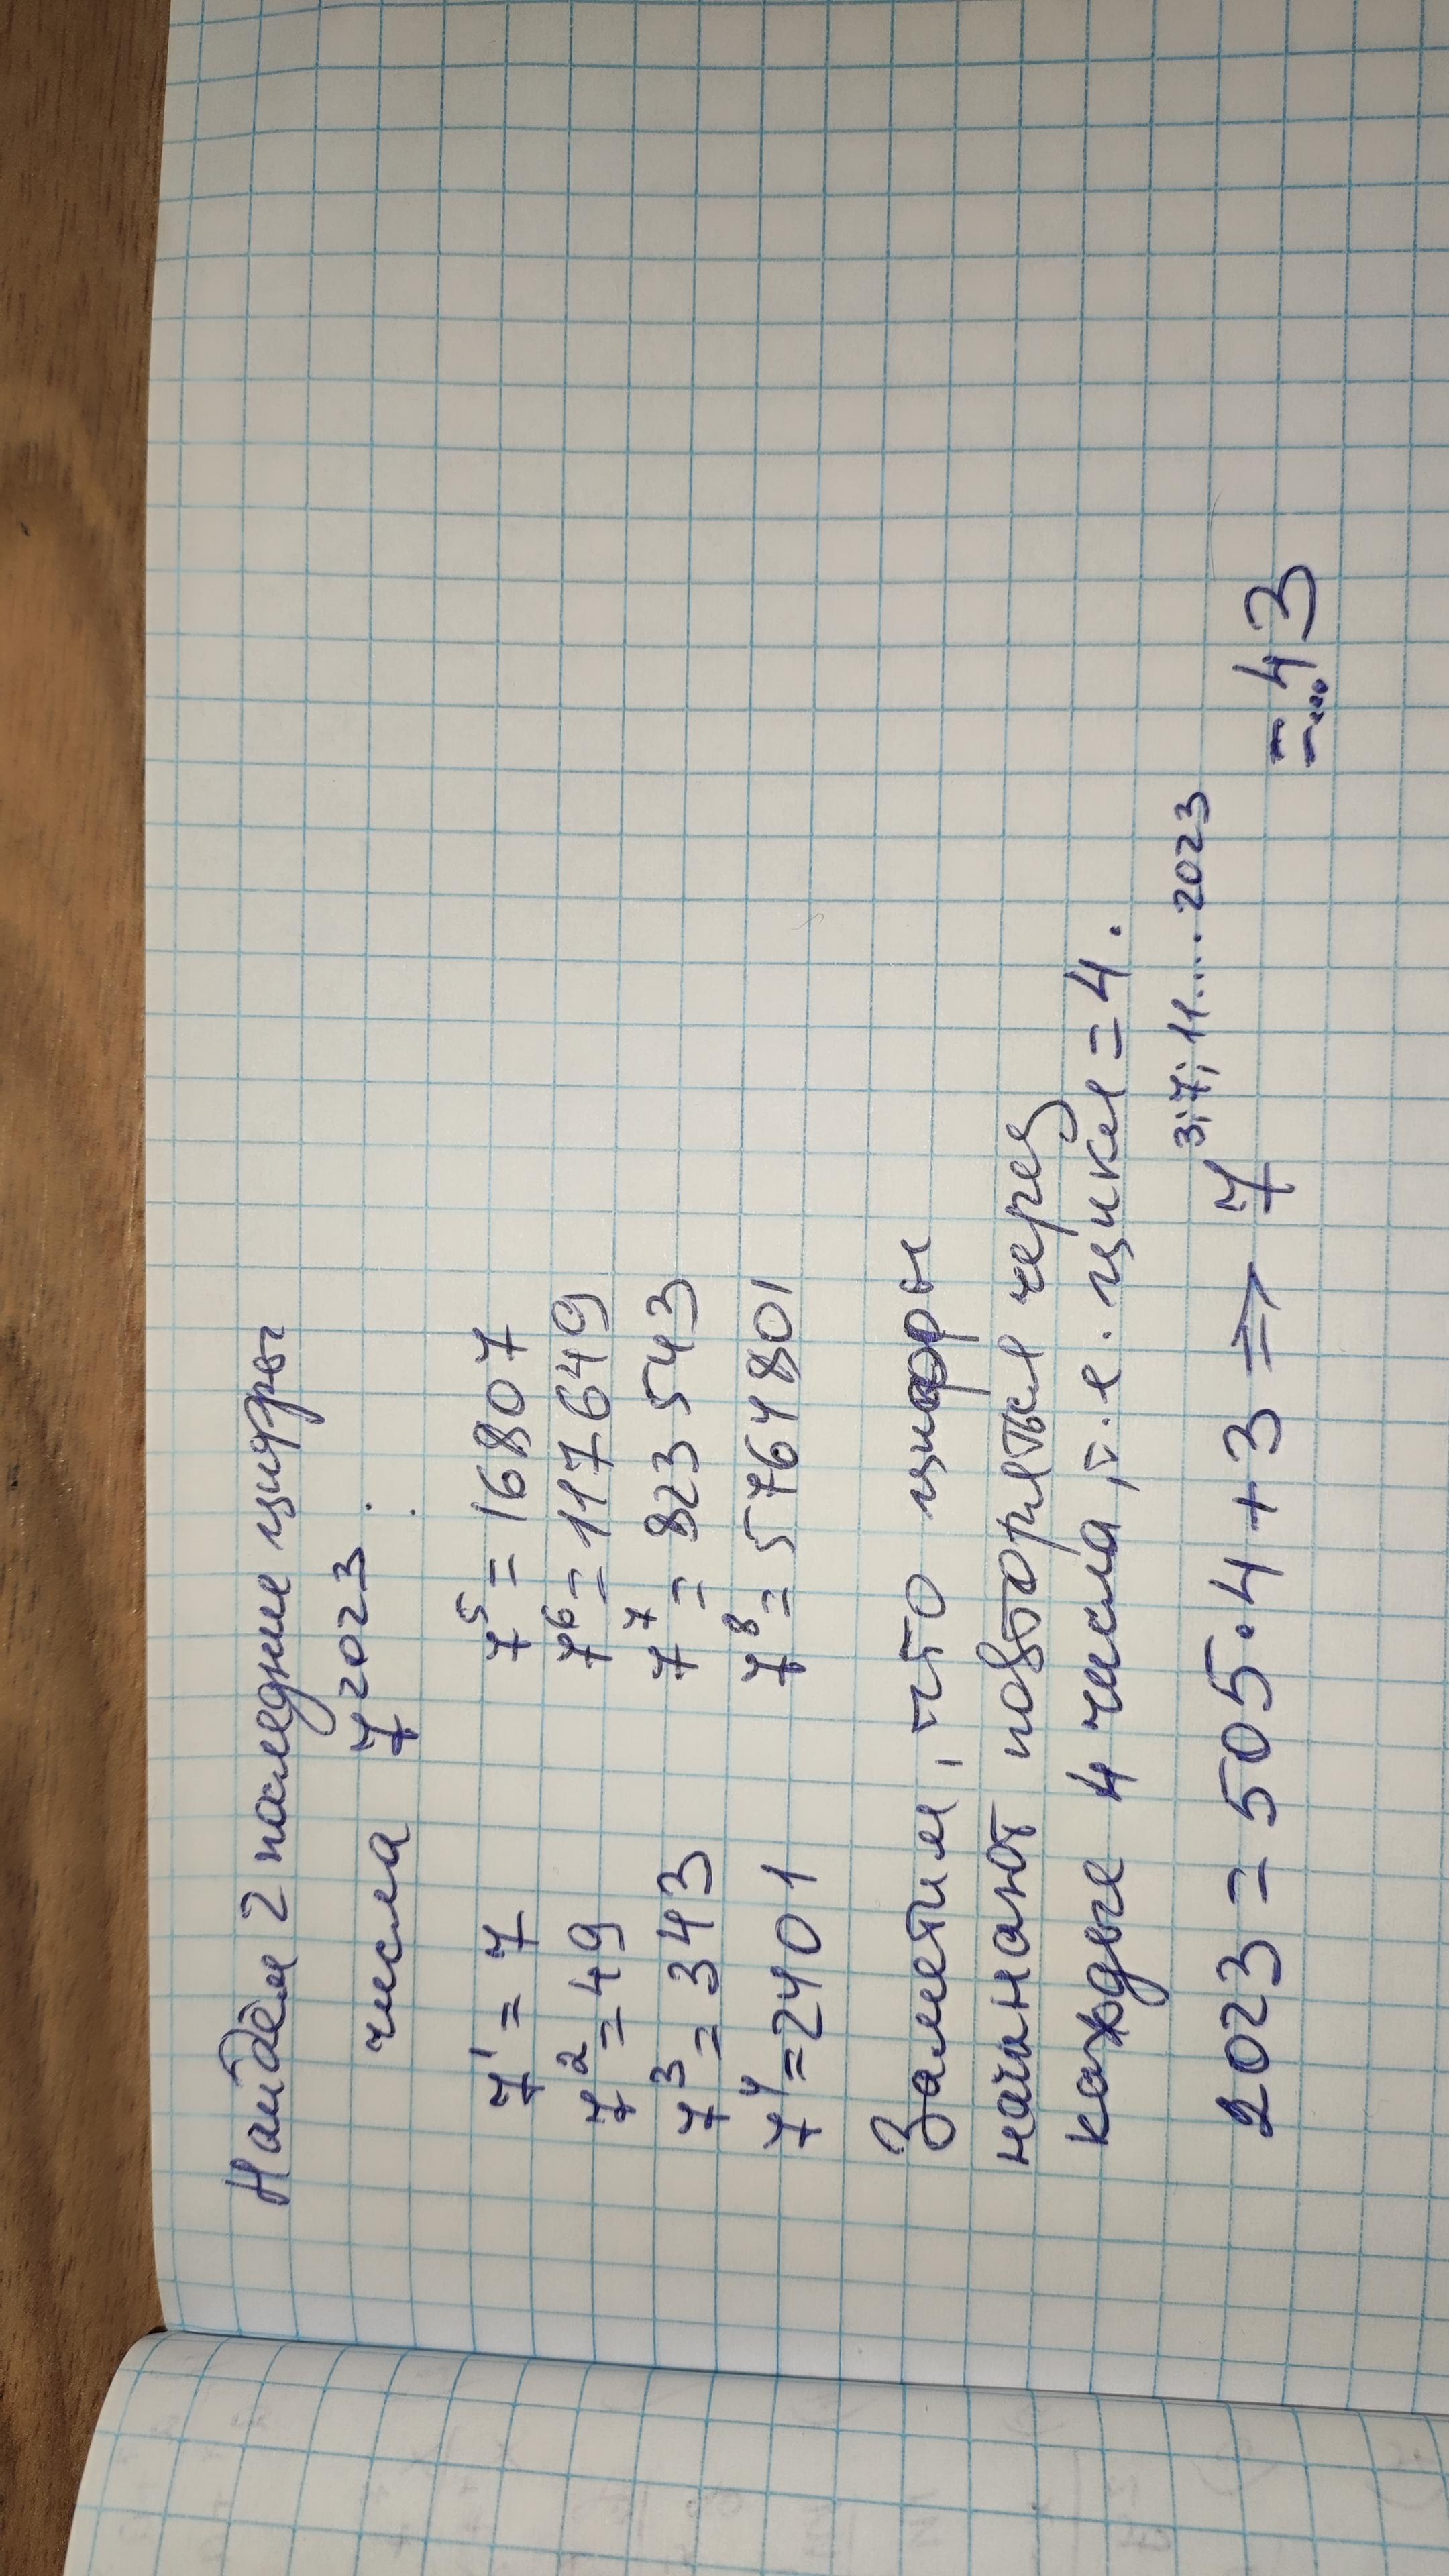 Найдём 2 последние цифры
числа 7²⁰²³ :
7¹ = 7 7⁵ = 16807
7² = 49 7⁶ = 117649
7³ = 343 7⁷ = 823543
7⁴ = 2401 7⁸ = 5764801
Заметим, что цифры
начинают повторяться через
каждые 4 числа, т.е. цикл = 4.
2023 = 505·4+3 => 7³;⁷;¹¹....²⁰²³ =...43